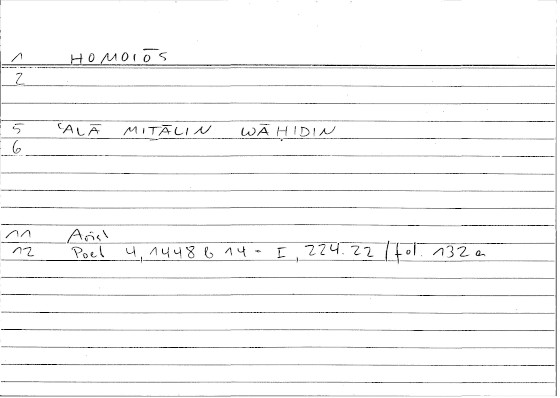 1 HOMOIŌS
2
5 ʿALĀ MIṮĀLIN WĀḤIDIN
6
11 Arist
12 Poet 4, 1448 b 14 = I, 224.22 / fol. 132 a